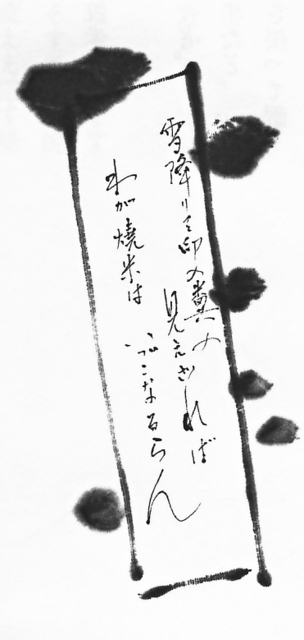 雪降りて卯の糞の
見えざれば
わが燒米は
いづこなるらん